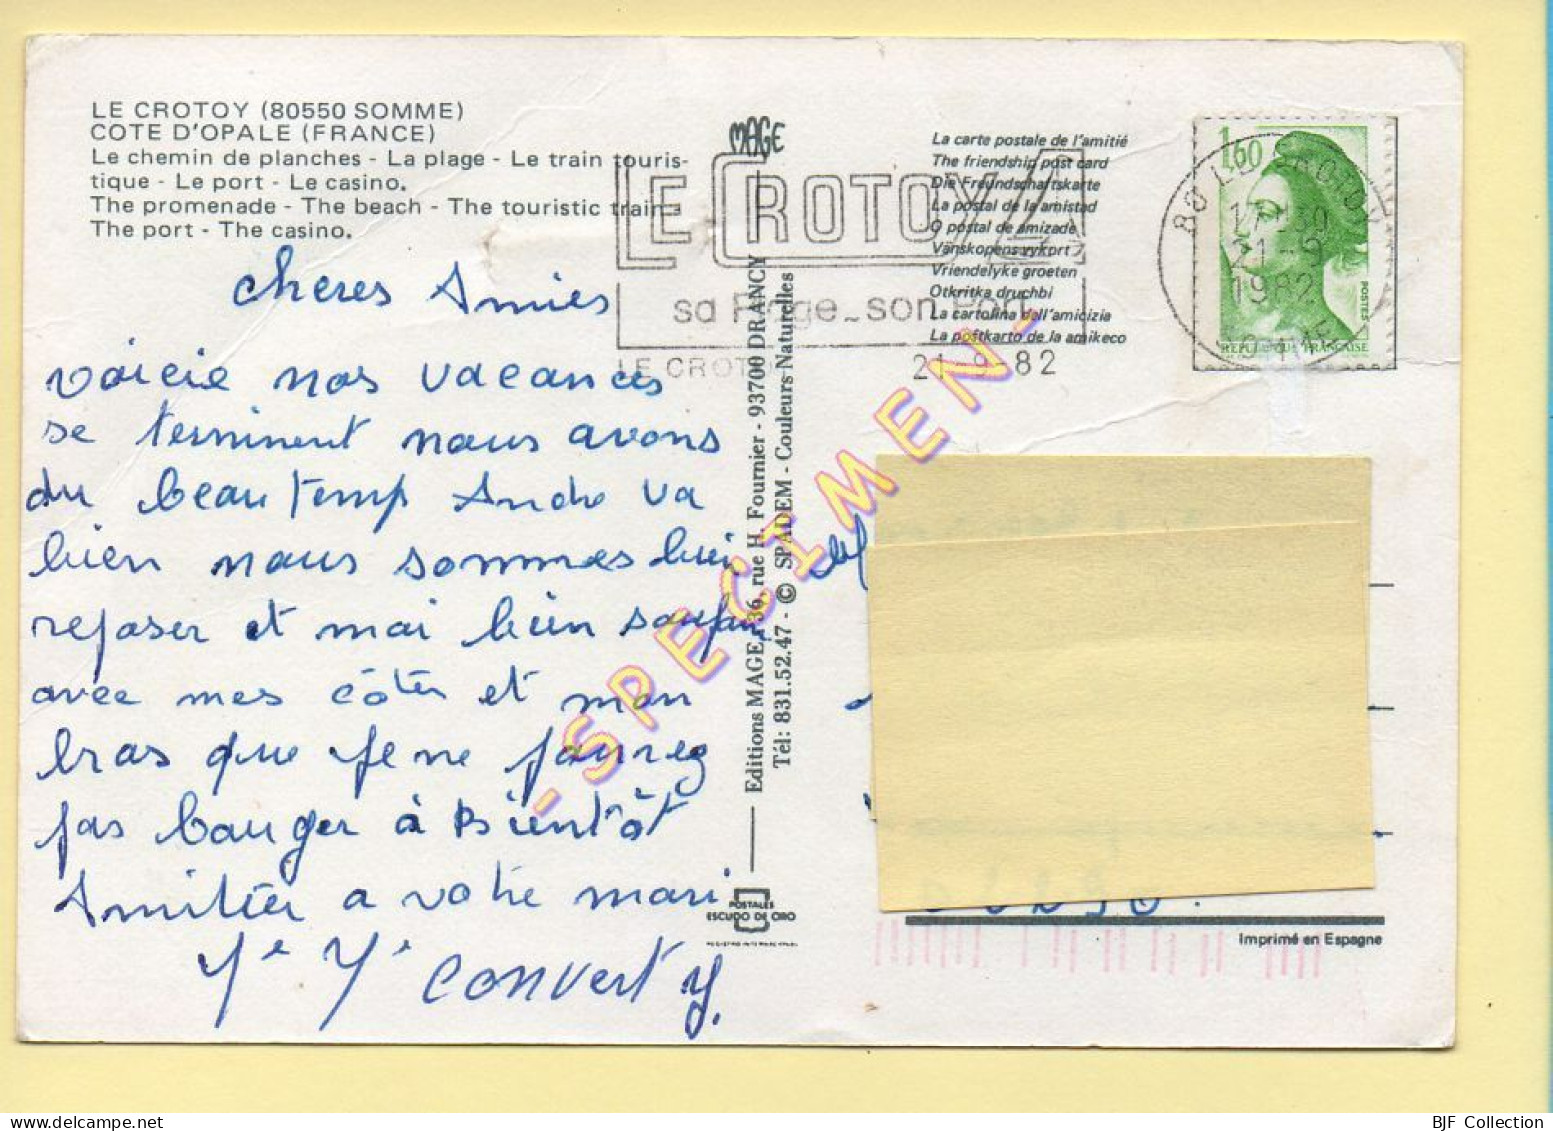 LE CROTOY (80550 SOMME)
COTE D'OPALE (FRANCE)
Le chemin de planches - La plage - Le train touris-
tique - Le port - Le casino.
The promenade - The beach - The touristic train -
The port - The casino.
chères Amies
voicie nos vacances
se terminent nous avons
du beau temp Andre va
bien nous sommes bien
reposer et moi bien
avec mes côtes et mon
bras que je ne
pas bouger à Bientôt
Amitier a votre mari
convert y.
MAGE
Editions MAGE, 36, rue H. Fournier - 93700 DRANCY
Tél: 831.52.47 - © SPADEM - Couleurs Naturelles
POSTALES
ESCUDO DE ORO
LE CROTOY
sa Plage_son Port
LE CROTOY
21.9.82
La carte postale de l'amitié
The friendship post card
Die Freundschaftskarte
La postal de la amistad
O postal de amizade
Vänskopens vykort
Vriendelyke groeten
Otkritka druchbi
La cartolina dell'amicizia
La postkarto de la amikeco
1,60
POSTES
REPUBLIQUE FRANÇAISE
80 LE CROTOY
17 30
21-9
1982
SOMME
- SPECIMEN -
Imprimé en Espagne
BJF Collection